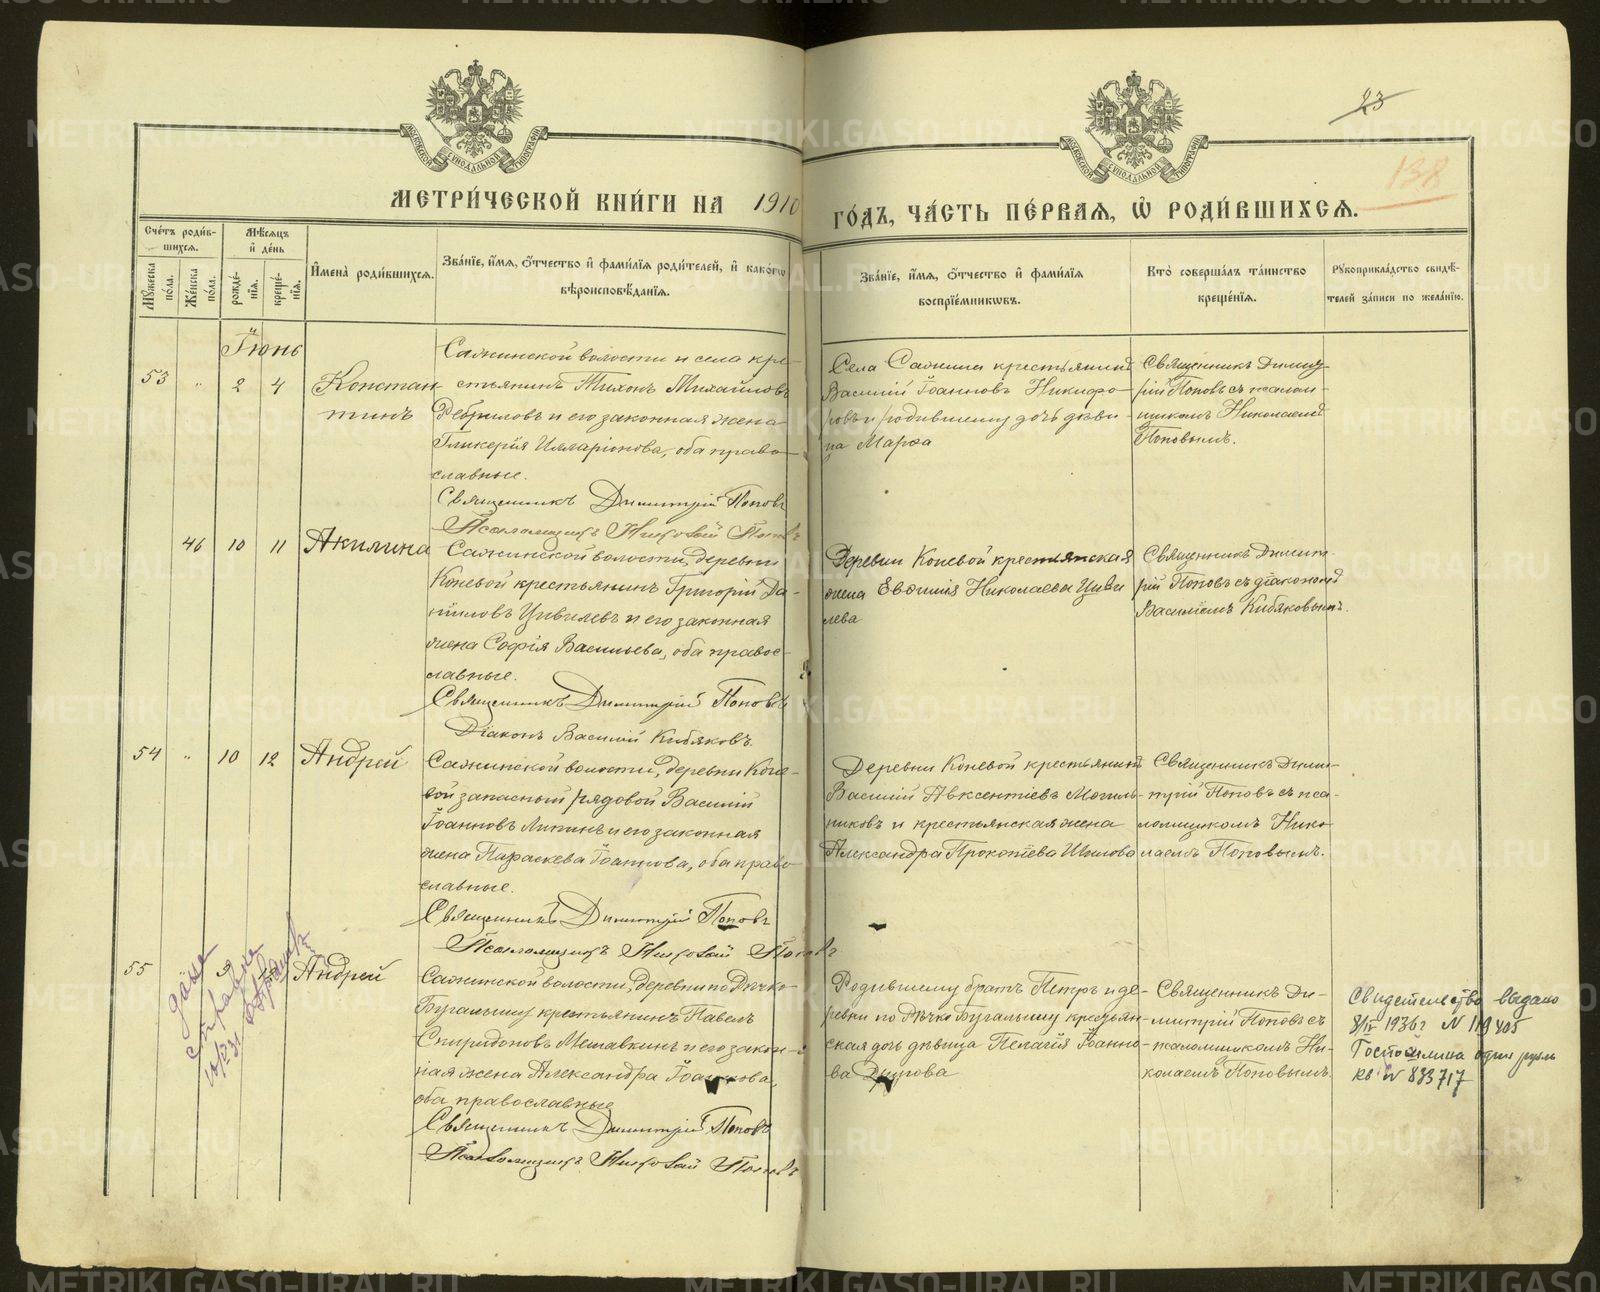 23
138
МЕТРИ́ЧЕСКОЙ КНИ́ГИ НА 1910
ГО́ДЪ, ЧА́СТЬ ПЕ́РВАЯ, Ѿ РОДИ́ВШИХСЯ.
Сче́тъ роди́в-
шихся.
Му́жеска по́ла.
Же́нска по́ла.
Мѣ́сяцъ и де́нь
рожде́-
нїя.
креще́-
нїя.
И҆мена̀ роди́вшихся.
Зва́нїе, и҆́мя, ѻ҆́тчество и҆ фами́лїя роди́телей, и҆ како́гѡ
вѣроисповѣ́данїя.
Зва́нїе, и҆́мя, ѻ҆́тчество и҆ фами́лїя
воспрїе́мникѡвъ.
Кто̀ соверша́лъ та́инство
креще́нїя.
Рꙋкоприкла́дство свидѣ́-
телей за́писи по жела́нїю.
Іюнь
53 " 2 4
Констан
тинъ
Сажинской волости и села кре-
стьянинъ Тихонъ Михайловъ
и его законная жена
Гликерія Илларіонова, оба право-
славные.
Священникъ Димитрій Поповъ
Псаломщикъ Николай Поповъ
Села Сажина крестьянинъ
Василій Іоанновъ Никифо-
ровъ и родившему дочь дѣви-
ца Марѳа
Священникъ Димит-
рій Поповъ съ псалом-
щикомъ Николаемъ
Поповымъ.
46 10 11
Акилина
Сажинской волости, деревни
Коневой крестьянинъ Григорій Да-
ніиловъ Цивилевъ и его законная
жена Софія Васильева, оба право-
славные.
Священникъ Димитрій Поповъ
Діаконъ Василій Кибяковъ.
Деревни Коневой крестьянская
жена Евѳимія Николаева Циви
лева
Священникъ Димит-
рій Поповъ съ діакономъ
Василіемъ Кибяковымъ.
54 " 10 12
Андрей
Сажинской волости, деревни Коне-
вой запасный рядовой Василій
Іоанновъ Липинъ и его законная
жена Параскева Іоаннова, оба право-
славные.
Священникъ Димитрій Поповъ
Псаломщикъ Николай Поповъ
Деревни Коневой крестьянинъ
Василій Авксентіевъ Могиль-
никовъ и крестьянская жена
Александра Прокопіева Шилова
Священникъ Дими-
трій Поповъ съ пса-
ломщикомъ Нико
лаемъ Поповымъ.
55
Андрей
дана
справка
Сажинской волости, деревни по рѣчкѣ
Бугалышу крестьянинъ Павелъ
Спиридоновъ Мешавкинъ и его закон-
ная жена Александра Іоаннова,
оба православные
Священникъ Димитрій Поповъ
Псаломщикъ Николай Поповъ
Родившему братъ Петръ и де-
ревни по рѣчкѣ Бугалышу крестьян-
ская дочь дѣвица Пелагія Іоанно-
ва Другова
Священникъ Ди-
митрій Поповъ съ
псаломщикомъ Ни-
колаемъ Поповымъ.
Свидетельство выдано
8/IV 1936 г N 119405
Госпошлина один рубль
кв N 833717